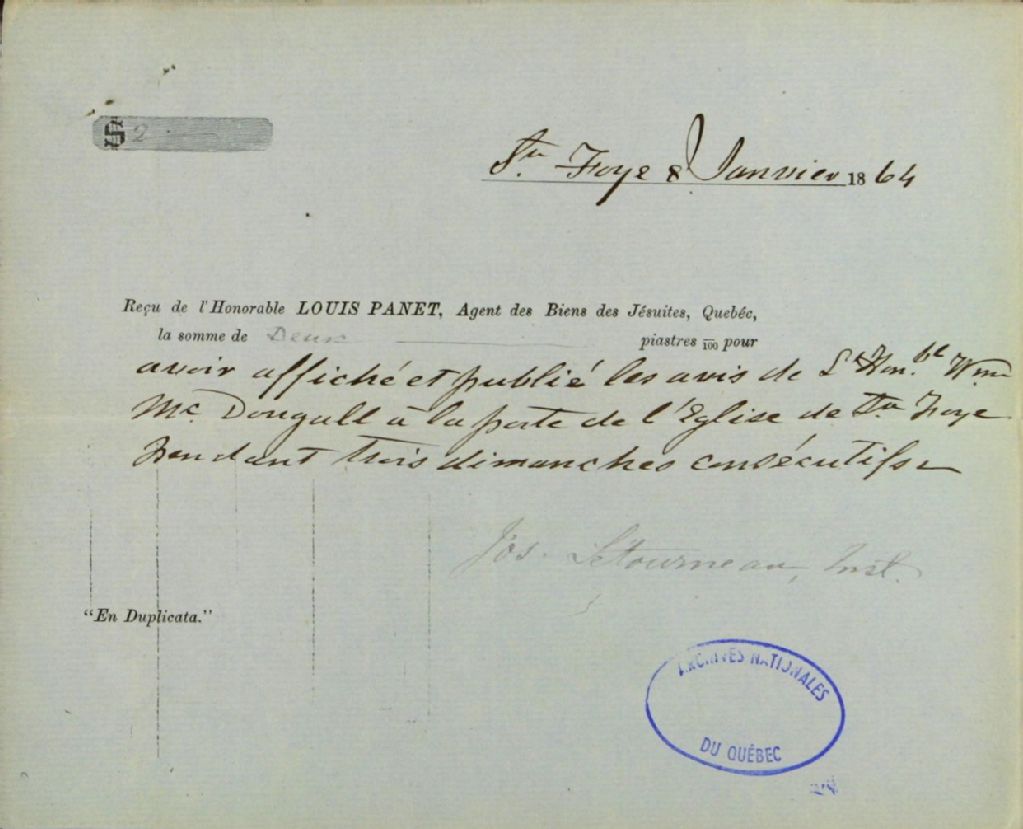 $ 2
Ste Foye 8 Janvier 1864
Reçu de l'Honorable LOUIS PANET, Agent des Biens des Jésuites, Quebéc,
la somme de Deux piastres /100 pour
avoir affiché et publié les avis de L'Hon.ble Wm
Mc Dougall à la porte de l'Eglise de Ste Foye
pendant trois dimanches consécutifs
Jos. Létourneau, Inst.
"En Duplicata."
ARCHIVES NATIONALES
DU QUÉBEC